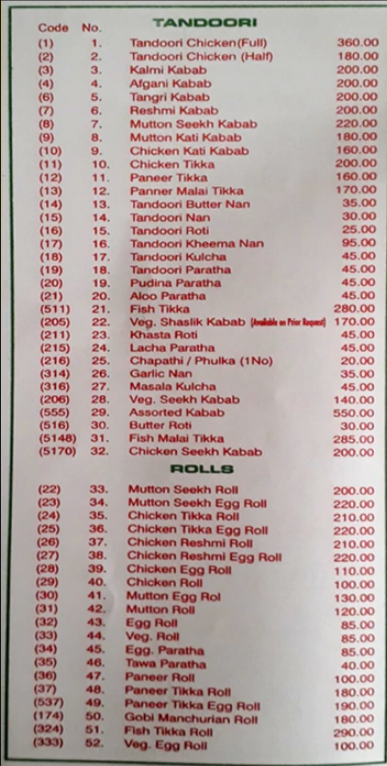 TANDOORI
Code No.
(1) 1. Tandoori Chicken(Full) 360.00
(2) 2. Tandoori Chicken (Half) 180.00
(3) 3. Kalmi Kabab 200.00
(4) 4. Afgani Kabab 200.00
(6) 5. Tangri Kabab 200.00
(7) 6. Reshmi Kabab 200.00
(8) 7. Mutton Seekh Kabab 220.00
(9) 8. Mutton Kati Kabab 180.00
(10) 9. Chicken Kati Kabab 160.00
(11) 10. Chicken Tikka 200.00
(12) 11. Paneer Tikka 160.00
(13) 12. Panner Malai Tikka 170.00
(14) 13. Tandoori Butter Nan 35.00
(15) 14. Tandoori Nan 30.00
(16) 15. Tandoori Roti 25.00
(17) 16. Tandoori Kheema Nan 95.00
(18) 17. Tandoori Kulcha 45.00
(19) 18. Tandoori Paratha 45.00
(20) 19. Pudina Paratha 45.00
(21) 20. Aloo Paratha 45.00
(511) 21. Fish Tikka 280.00
(205) 22. Veg. Shaslik Kabab (Available on Prior Request) 170.00
(211) 23. Khasta Roti 45.00
(215) 24. Lacha Paratha 45.00
(216) 25. Chapathi / Phulka (1No) 20.00
(314) 26. Garlic Nan 35.00
(316) 27. Masala Kulcha 45.00
(206) 28. Veg. Seekh Kabab 140.00
(555) 29. Assorted Kabab 550.00
(516) 30. Butter Roti 30.00
(5148) 31. Fish Malai Tikka 285.00
(5170) 32. Chicken Seekh Kabab 200.00
ROLLS
(22) 33. Mutton Seekh Roll 200.00
(23) 34. Mutton Seekh Egg Roll 220.00
(24) 35. Chicken Tikka Roll 210.00
(25) 36. Chicken Tikka Egg Roll 220.00
(26) 37. Chicken Reshmi Roll 210.00
(27) 38. Chicken Reshmi Egg Roll 220.00
(28) 39. Chicken Egg Roll 110.00
(29) 40. Chicken Roll 100.00
(30) 41. Mutton Egg Rol 130.00
(31) 42. Mutton Roll 120.00
(32) 43. Egg Roll 85.00
(33) 44. Veg. Roll 85.00
(34) 45. Egg. Paratha 85.00
(35) 46. Tawa Paratha 40.00
(36) 47. Paneer Roll 100.00
(37) 48. Paneer Tikka Roll 180.00
(537) 49. Paneer Tikka Egg Roll 190.00
(174) 50. Gobi Manchurian Roll 180.00
(324) 51. Fish Tikka Roll 290.00
(333) 52. Veg. Egg Roll 100.00